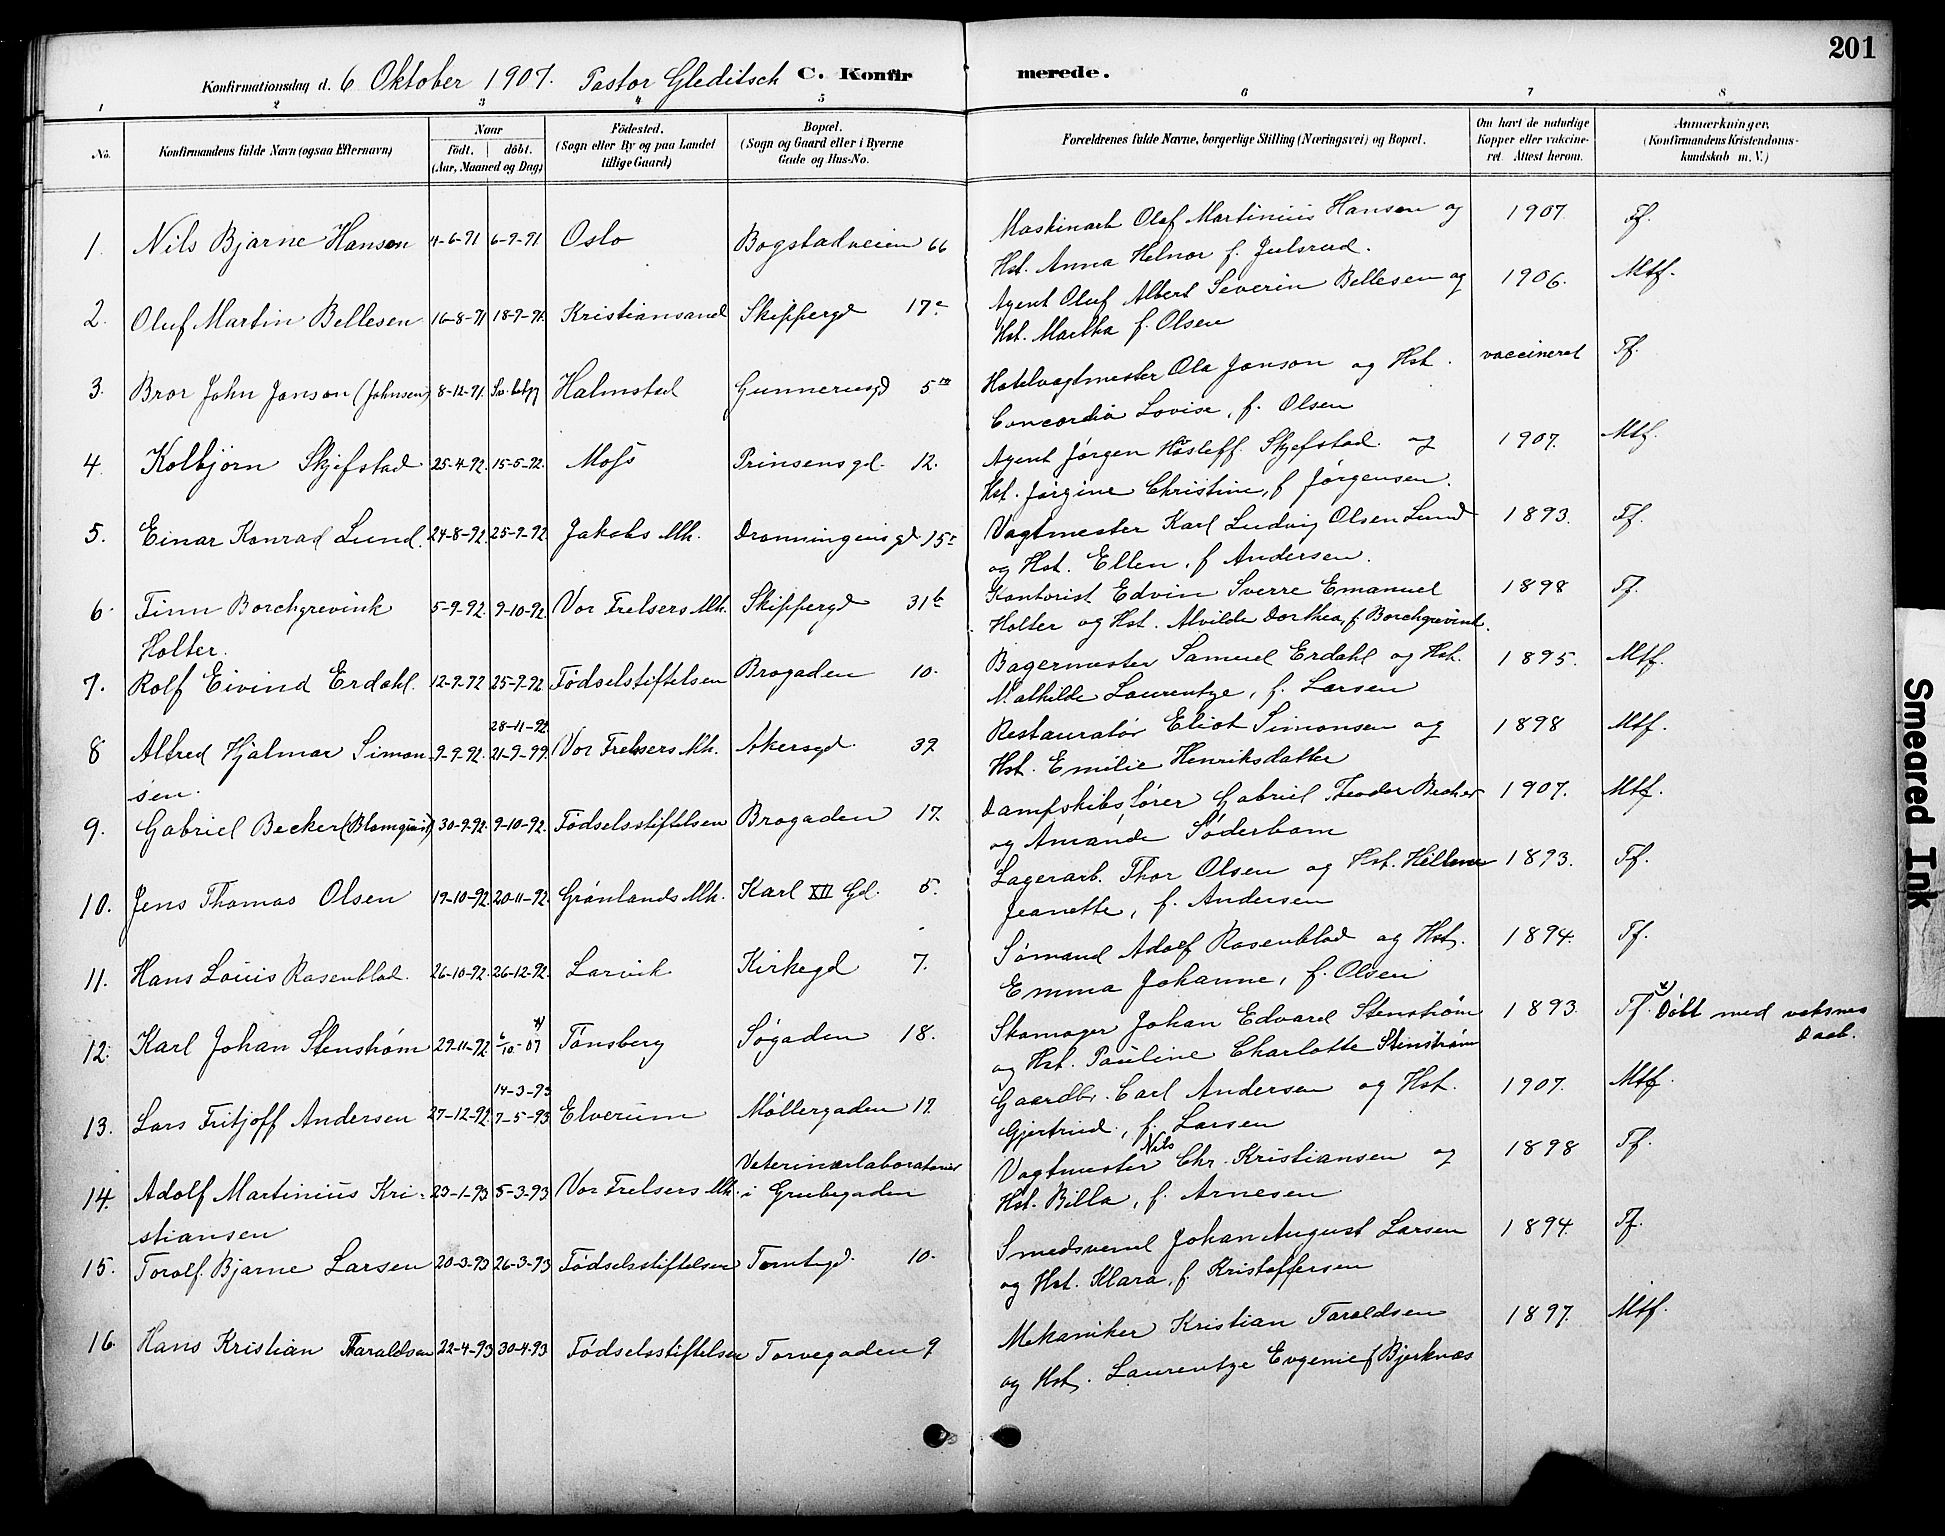 201
Konfirmationsdag d. 6 Oktober 1907. Pastor Gleditsch C. Konfirmerede.
1 2 3 4 5 6 7 8
No. Konfirmandens fulde Navn (ogsaa Efternavn) Naar født. døbt. (Aar, Maaned og Dag) Fødested. (Sogn eller By og paa Landet tillige Gaard) Bopæl. (Sogn og Gaard eller i Byerne Gade og Hus-No. Forældrenes fulde Navne, borgerlige Stilling (Næringsvei) og Bopæl. Om havt de naturlige Kopper eller vaccineret. Attest herom. Anmærkninger. (Konfirmandens Kristendomskundskab m. V.)
1. Nils Bjarne Hansen 4-6-91 6-9-91 Oslo Bogstadveien 66 Maskinarb Olaf Martinius Hansen og 1907. Tf.
Hst. Anna Helnor f. Julsrud.
2. Oluf Martin Bellesen 16-8-91 18-9-91. Kristiansand Skippergd 17 Agent Oluf Albert Severin Bellesen og 1906. Mtf.
Hst. Martha f. Olsen
3. Bror John Janson (Johnsen) 8-12-91. Halmstad Gunnerusgd 5 Hotelvagtmester Ola Janson og Hst. vaccineret Tf.
Concordia Lovise, f. Olsen
4. Kolbjørn Skjefstad 25-4-92. 15-5-92. Moss Prinsensgd. 12. Agent Jørgen Hasleff Skjefstad og 1907. Mtf.
Hst. Jørgine Christine, f Jørgensen.
5. Einar Konrad Lund. 24-8-92. 25-9-92. Jakobs Mh. Dronningensgd 15 Vagtmester Karl Ludvig Olsen Lund 1893. Tf.
og Hst. Ellen, f Andersen.
6. Finn Borchgrevink 5-9-92. 9-10-92. Vor Frelsers Mh. Skippergd 31b Kontorist Edvin Sverre Emanuel 1898 Tf.
Holter. Holter og Hst. Alvilde Dorthea, f Borchgrevink.
7. Rolf Eivind Erdahl. 12-9-92 25-9-92 Fødselstiftelsen Brogaden 10. Bagermester Samuel Erdahl og Hst. 1895. Mtf.
Mathilde Laurentze, f. Larsen
28-11-92.
8 Alfred Hjalmar Simon 9-9-92. 21-9-99. Vor Frelsers Mh. Akersgd. 39. Restauratør Eliot Simonsen og 1898 Mtf.
sen. Hst. Emilie Henriksdatter
9. Gabriel Becker (Blomquist) 30-9-92. 9-10-92. Fødselsstiftelsen Brogaden 17. Dampskibsfører Gabriel Theodor Becker 1907. Mtf.
og Amanda Søderbom
10. Jens Thomas Olsen 19-10-92. 20-11-92. Grønlands Mh. Karl XII Gd. 5. Lagerarb. Thor Olsen og Hst. Hellene 1893. Tf.
Jeanette, f. Andersen
11. Hans Louis Rosenblad. 26-10-92. 26-12-92. Larvik Kirkegd 7. Sømand Adolf Rosenblad og Hst. 1894. Tf.
Emma Johanne, f. Olsen
12. Karl Johan Stenstrøm 29-11-92 6/10-07 x) Tønsberg Søgaden 18. Skomager Johan Edvard Stenstrøm 1893. Tf. x) Døbt med voksnes
og Hst. Pauline Charlotte Stenstrøm Daab.
14-3-93
13. Lars Fritjoff Andersen 27-12-92. 7-5-93 Elverum Møllergaden 17. Gaardbr. Carl Andersen og Hst. 1907. Mtf.
Gjertrud, f. Larsen
14. Adolf Martinius Kri- 23-1-93 5-3-93 Vor Frelsers Mh. Veterinærlaboratoriet i Grubegaden Vagtmester Nils Chr. Kristiansen og 1898 Tf.
stiansen Hst. Billa, f. Arnesen
15. Toralf Bjarne Larsen 20-3-93 26-3-93 Fødselsstiftelsen Tomtegd. 10. Smedsvend Johan August Larsen 1894. Tf.
og Hst. Klara, f. Kristoffersen
16. Hans Kristian Taraldsen 22-4-93 30-4-93 Fødselsstiftelsen Torvegaden 9 Mekaniker Kristian Taraldsen 1897. Mtf.
og Hst. Laurentze Evgenie f Bjerknæs
Smeared Ink